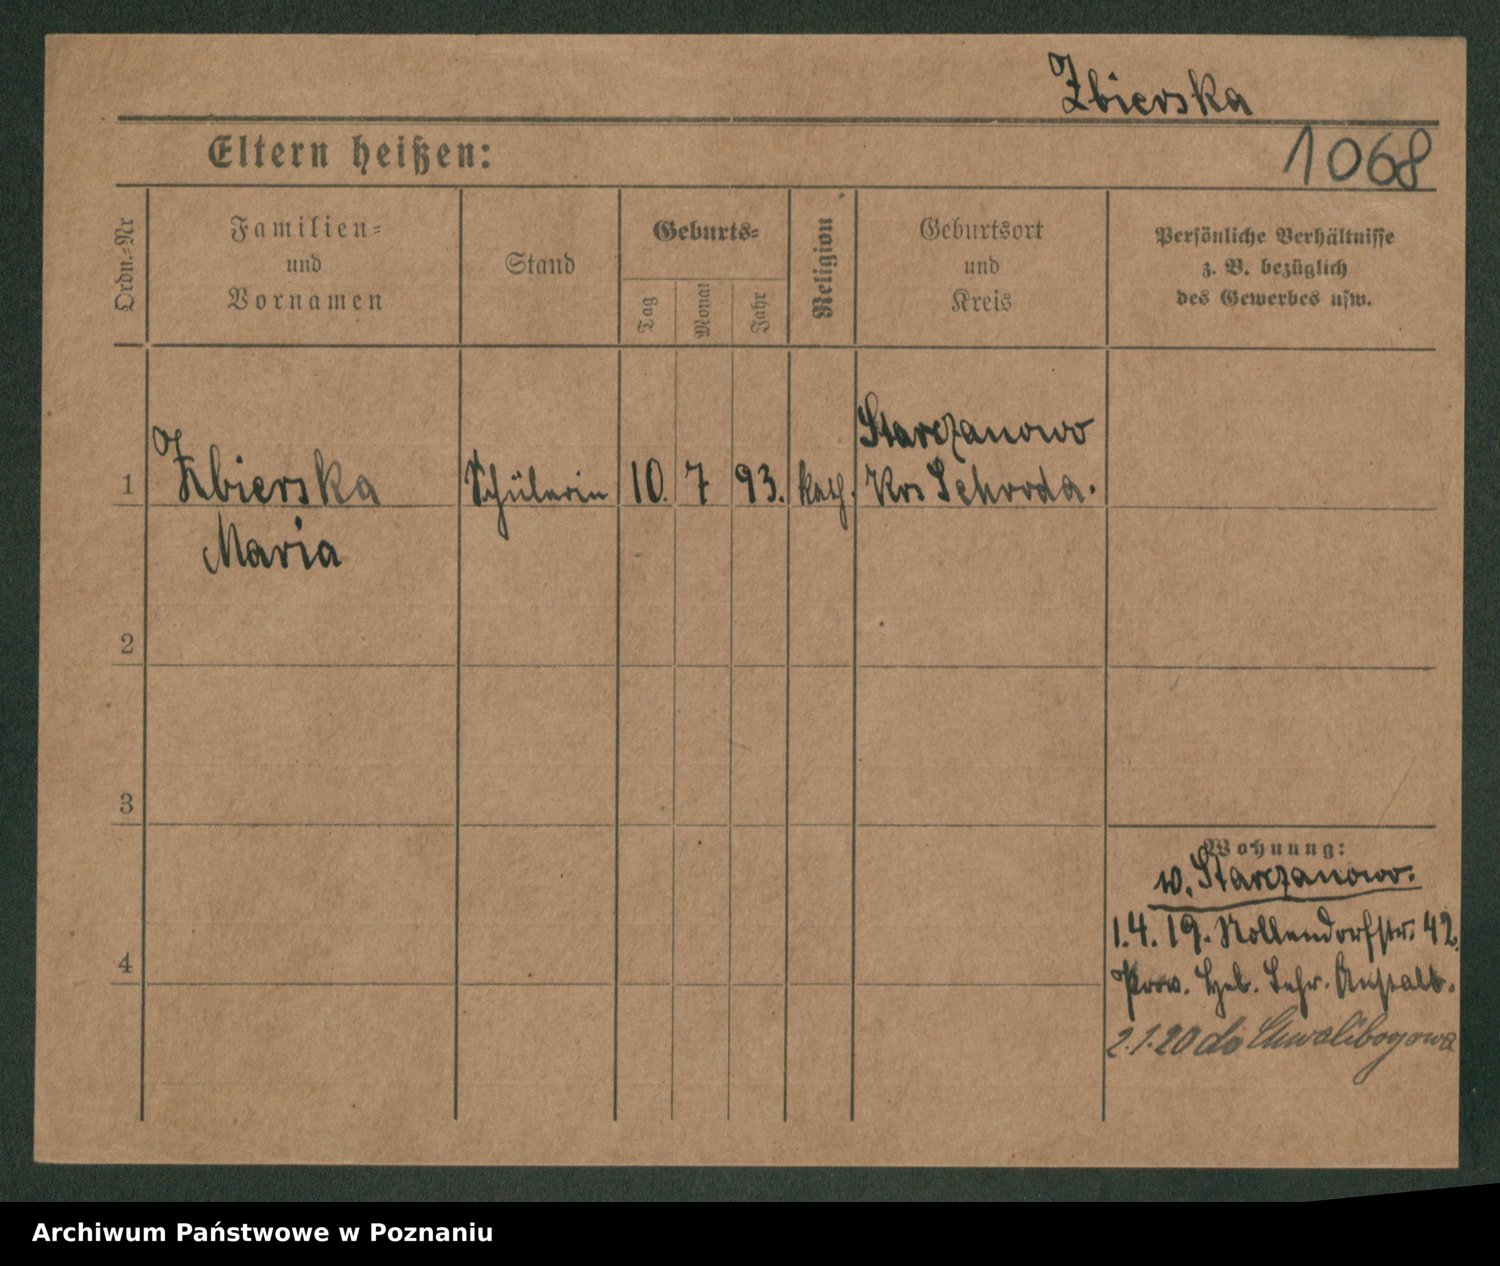 Zbierska
1068
Eltern heißen:
Ordn.-Nr
Familien-
und
Vornamen
Stand
Geburts-
Tag
Monat
Jahr
Religion
Geburtsort
und
Kreis
Persönliche Verhältnisse
z. B. bezüglich
des Gewerbes usw.
1
Zbierska
Maria
Schülerin
10.
7
93.
kath.
Starczanowo
Krs Schroda.
2
3
4
Wohnung:
w. Starczanowo.
1.4.19. Nollendorfstr. 42.
Prov. Heb. Lehr. Anstalt.
2.1.20 do Chwalibogowa
Archiwum Państwowe w Poznaniu